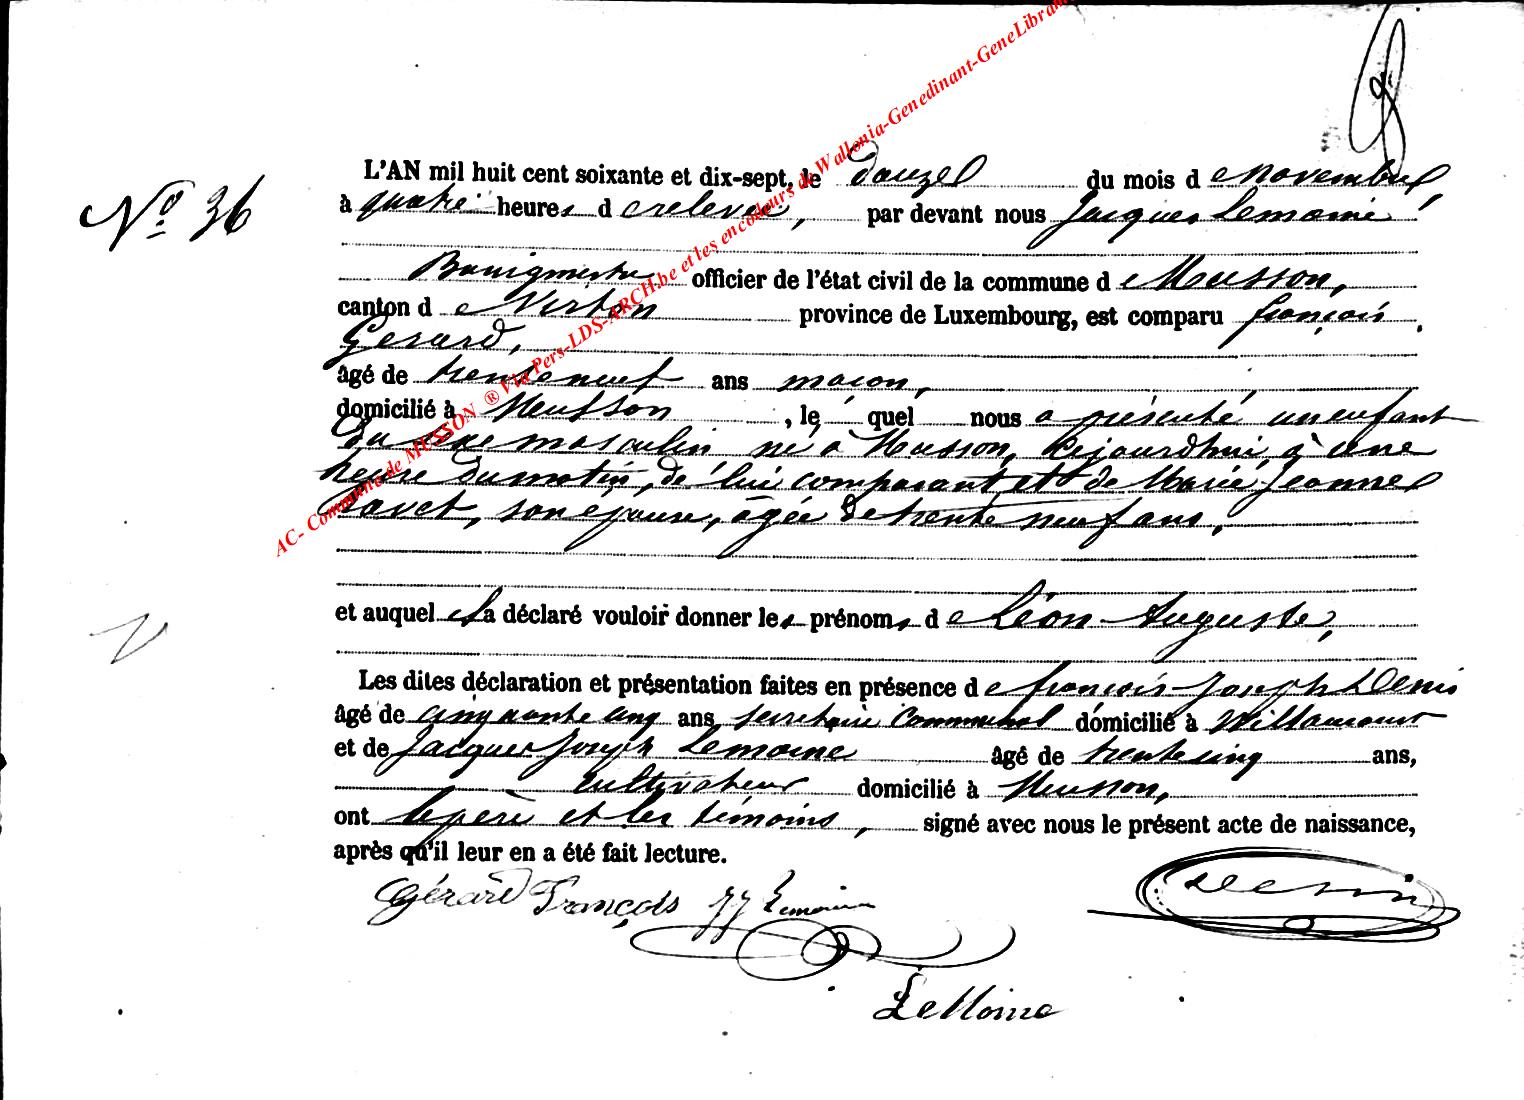 L'AN mil huit cent soixante et dix-sept, le douze du mois de novembre,
No 36
à quatre heures de relevée, par devant nous Jacques Lemoine
Bourgmestre officier de l'état civil de la commune de Musson,
canton de Virton province de Luxembourg, est comparu françois
Gerard,
âgé de trente neuf ans maçon,
domicilié à Musson, lequel nous a présenté un enfant
du sexe masculin né à Musson, cejourd'hui, à une
heure du matin, de lui comparant et de Marie Jeanne
son épouse, âgée de trente neuf ans,
et auquel il a déclaré vouloir donner les prénoms de Léon Auguste,
Les dites déclaration et présentation faites en présence de françois-Joseph Denis
âgé de cinquante cinq ans secrétaire communal domicilié à Willancourt
et de Jacques Joseph Lemoine âgé de trente cinq ans,
cultivateur domicilié à Musson,
ont le père et les témoins, signé avec nous le présent acte de naissance,
après qu'il leur en a été fait lecture.
Gérard François JJ Lemoine Denis
LeMoine
AC- Commune de MUSSON ® Via Pers-LDS-ARCH.be et les encodeurs de Wallonia-Genedinant-GeneLibra